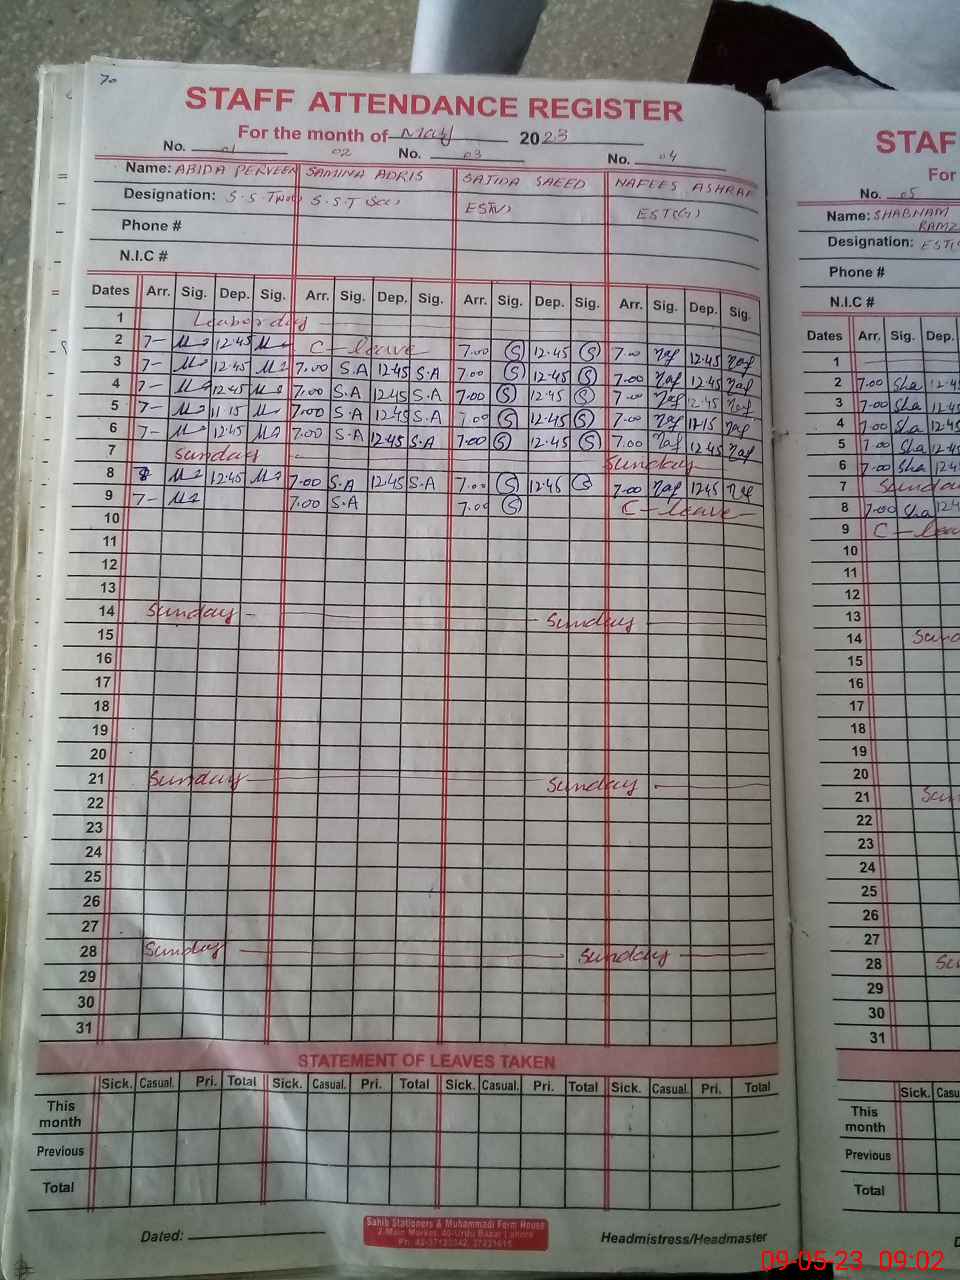 70
STAFF ATTENDANCE REGISTER
For the month of May 2023
No. 01 02 No. 03 No. 04
Name: ABIDA PERVEEN SAMINA ADRIS SAJIDA SAEED NAFEES ASHRAF
Designation: S.S.T S.S.T (Sci) EST EST(G)
Phone #
N.I.C #
Dates Arr. Sig. Dep. Sig. Arr. Sig. Dep. Sig. Arr. Sig. Dep. Sig. Arr. Sig. Dep. Sig.
1 Leabor day
2 7- 12.45 C-leave 7.00 S 12.45 S 7.00 Naf 12.45 Naf
3 7- 12.45 7.00 S.A 12.45 S.A 7.00 S 12.45 S 7.00 Naf 12.45 Naf
4 7- 12.45 7.00 S.A 12.45 S.A 7.00 S 12.45 S 7.00 Naf 12.45 Naf
5 7- 11.15 7.00 S.A 12.45 S.A 7.00 S 12.45 S 7.00 Naf 12.15 Naf
6 7- 12.45 7.00 S.A 12.45 S.A 7.00 S 12.45 S 7.00 Naf 12.45 Naf
7 Sunday Sunday
8 12.45 7.00 S.A 12.45 S.A 7.00 S 12.45 S 7.00 Naf 1245 Naf
9 7- 7.00 S.A 7.00 S C-leave
10
11
12
13
14 Sunday - Sunday
15
16
17
18
19
20
21 Sunday Sunday
22
23
24
25
26
27
28 Sunday Sunday
29
30
31
STATEMENT OF LEAVES TAKEN
Sick. Casual. Pri. Total Sick. Casual. Pri. Total Sick. Casual. Pri. Total Sick. Casual. Pri. Total
This month
Previous
Total
Dated:
Sahib Stationers & Muhammadi Form House
2-Main Market, 40-Urdu Bazar Lahore
Headmistress/Headmaster
STAF
For
No. 05
Name: SHABNAM
RAMZ
Designation: EST
Phone #
N.I.C #
Dates Arr. Sig. Dep.
1
2 7.00 Sha 12.45
3 7.00 Sha 12.45
4 7.00 Sha 12.45
5 7.00 Sha 12.45
6 7.00 Sha 12.4
7 Sunda
8 7.00 Sha 12.4
9 C-leav
10
11
12
13
14 Sund
15
16
17
18
19
20
21 Sun
22
23
24
25
26
27
28 Su
29
30
31
Sick. Casu
This month
Previous
Total
09-05-23 09:02